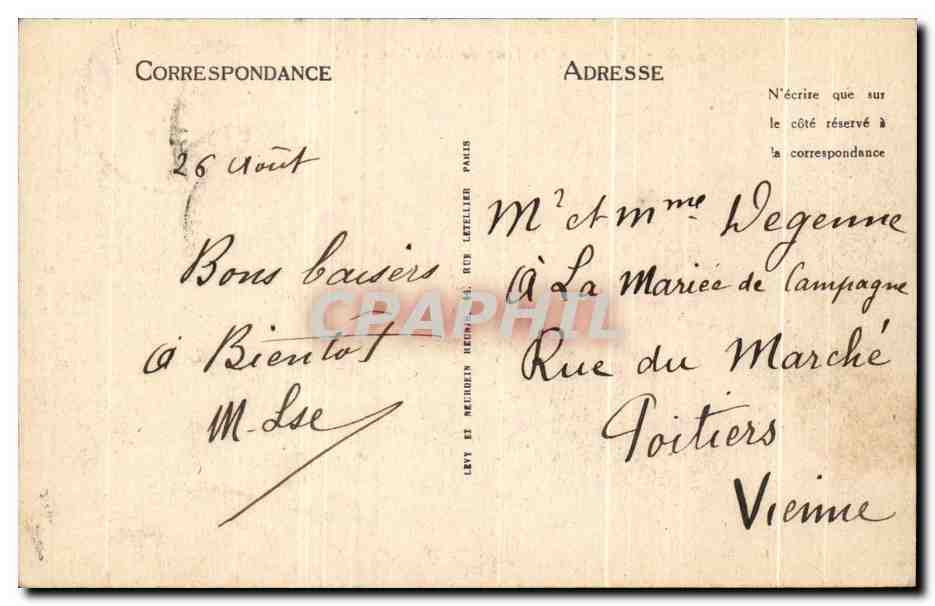 CORRESPONDANCE
26 Août
Bons baisers
à Bientôt
M-Lse
LEVY ET NEURDEIN REUNIS, 44, RUE LETELLIER PARIS
ADRESSE
N'écrire que sur
le côté réservé à
la correspondance
Mr et Mme Degenne
à La Mariée de Campagne
Rue du Marché
Poitiers
Vienne
CPAPHIL